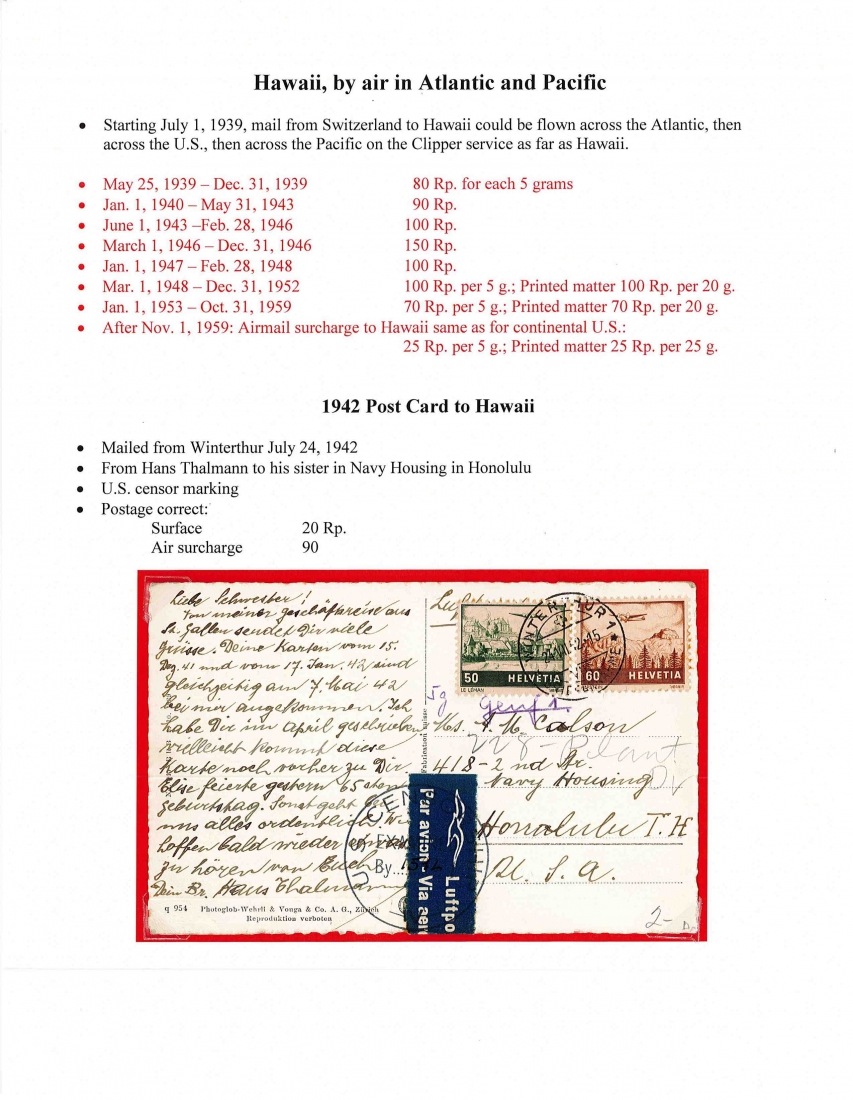 Hawaii, by air in Atlantic and Pacific
• Starting July 1, 1939, mail from Switzerland to Hawaii could be flown across the Atlantic, then
across the U.S., then across the Pacific on the Clipper service as far as Hawaii.
• May 25, 1939 – Dec. 31, 1939 80 Rp. for each 5 grams
• Jan. 1, 1940 – May 31, 1943 90 Rp.
• June 1, 1943 –Feb. 28, 1946 100 Rp.
• March 1, 1946 – Dec. 31, 1946 150 Rp.
• Jan. 1, 1947 – Feb. 28, 1948 100 Rp.
• Mar. 1, 1948 – Dec. 31, 1952 100 Rp. per 5 g.; Printed matter 100 Rp. per 20 g.
• Jan. 1, 1953 – Oct. 31, 1959 70 Rp. per 5 g.; Printed matter 70 Rp. per 20 g.
• After Nov. 1, 1959: Airmail surcharge to Hawaii same as for continental U.S.:
25 Rp. per 5 g.; Printed matter 25 Rp. per 25 g.
1942 Post Card to Hawaii
• Mailed from Winterthur July 24, 1942
• From Hans Thalmann to his sister in Navy Housing in Honolulu
• U.S. censor marking
• Postage correct:
Surface 20 Rp.
Air surcharge 90
Liebe Schwester!
Von meiner Geschäftsreise aus
St. Gallen sendet Dir viele
Grüsse. Deine Karten vom 15.
Dez. 41 und vom 17. Jan. 42 sind
gleichzeitig am 7. Mai 42
bei mir angekommen. Ich
habe Dir im April geschrieben
vielleicht kommt diese
Karte noch vorher zu Dir
Elise feierte gestern 65 sten
Geburtshag. Sonst geht
uns alles ordentlich. Wir
hoffen bald wieder
zu hören von Euch
Dein Br. Hans Thalmann
q 954 Photoglob-Wehrli & Vouga & Co. A. G., Zürich
Reproduktion verboten
WINTERTHUR 1
50 HELVETIA
LE LÉMAN
60 HELVETIA
5g
Genf 1.
Ms. A. M. Calson
228 - Plant
418 - 2 nd Str.
Navy Housing
Honolulu T. H
U. S. A.
Par avion - Via aer
Luftpo
By
2-